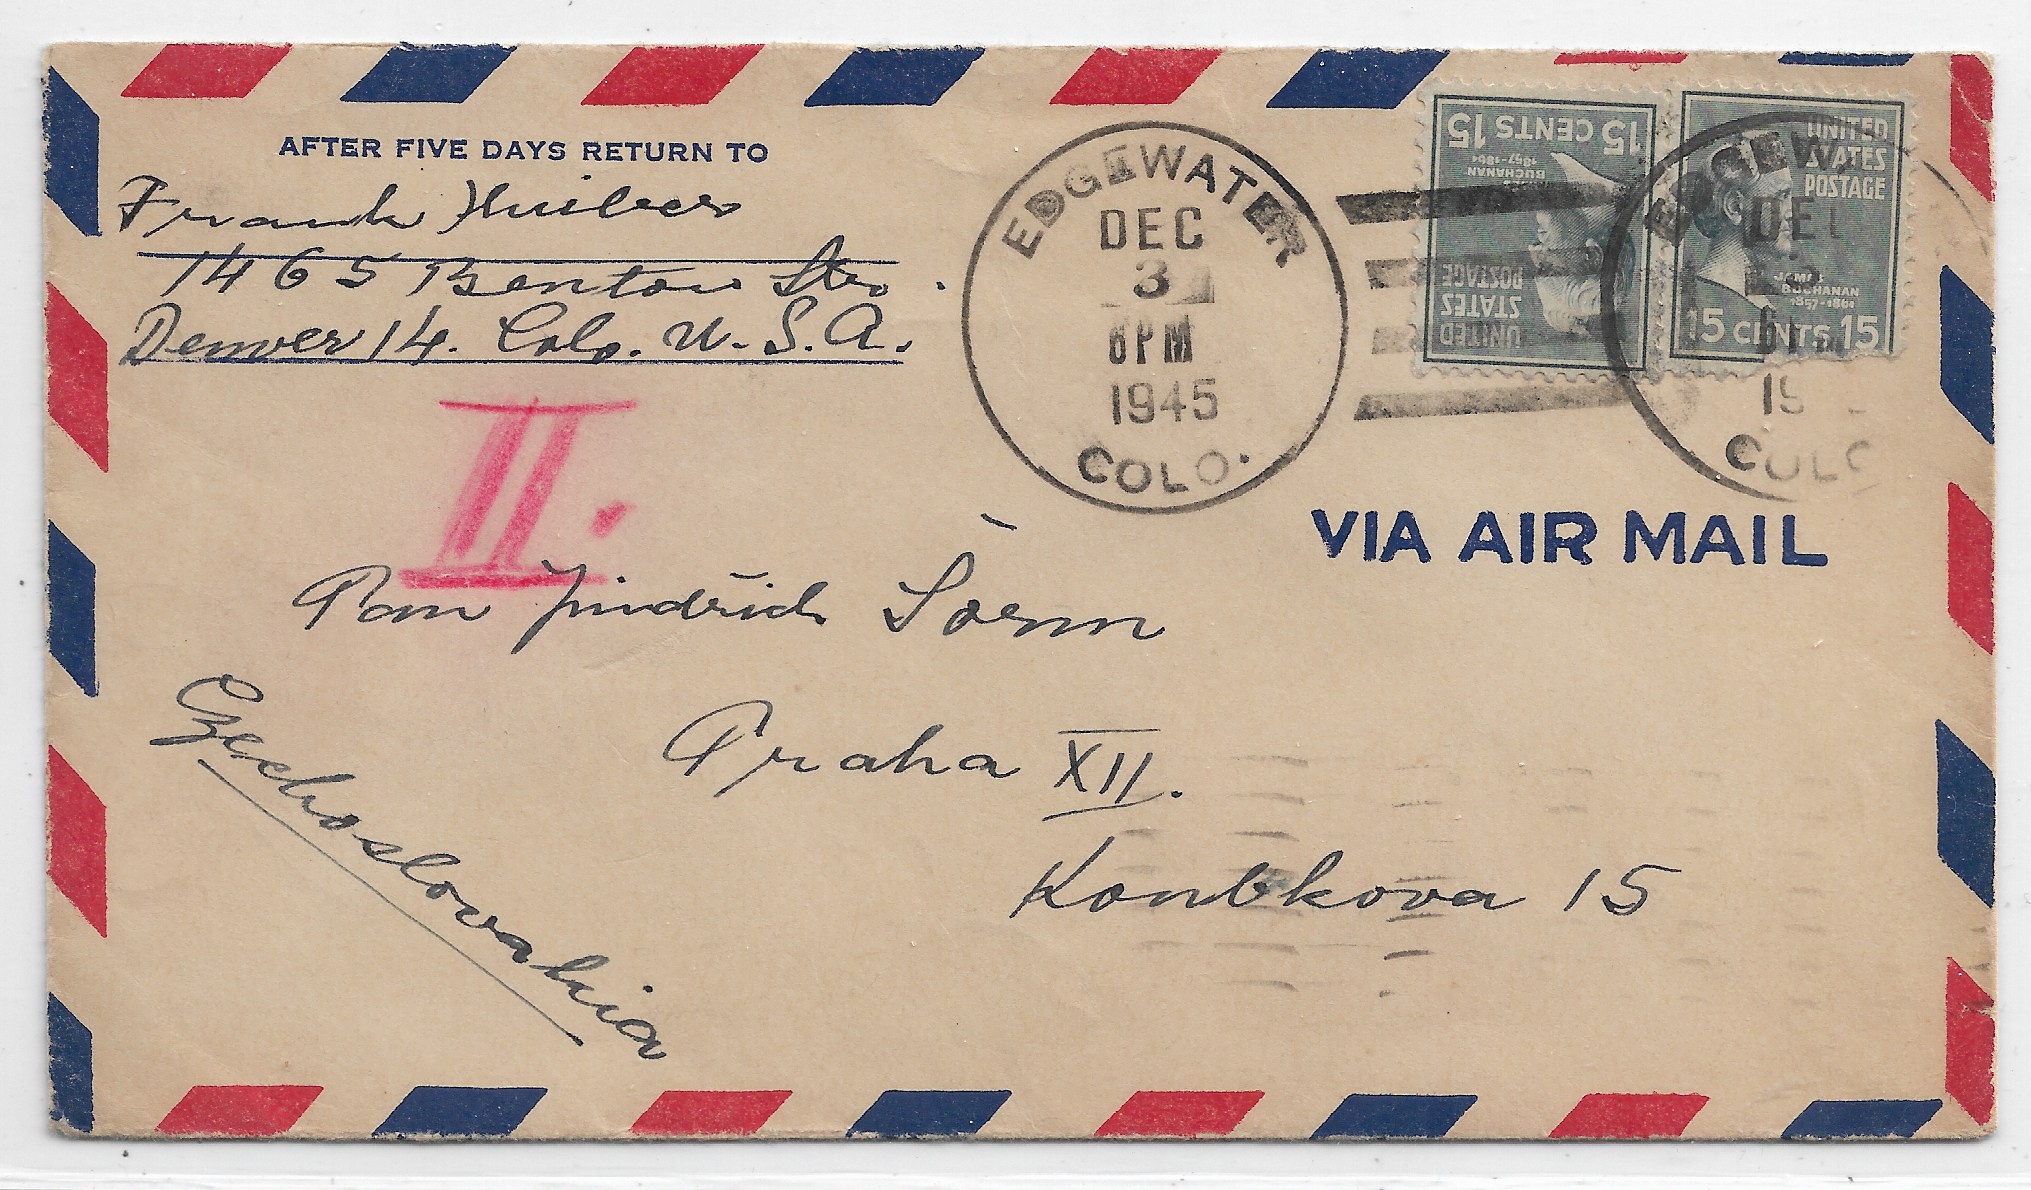 AFTER FIVE DAYS RETURN TO
Frank
1465 Benton Str.
Denver 14. Colo. U.S.A.
EDGEWATER
DEC
3
6PM
1945
COLO.
15 CENTS 15
BUCHANAN
1857-1861
UNITED
STATES
POSTAGE
UNITED
STATES
POSTAGE
JAMES
BUCHANAN
1857-1861
15 CENTS 15
EDGEW
DEC
19
COLO
VIA AIR MAIL
II.
Pan Jindřich Šorm
Praha XII.
Korubkova 15
Czechoslovakia